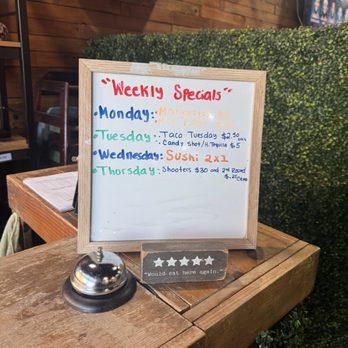 "Weekly Specials"
• Monday:
• Tuesday: • Taco Tuesday $2.50
• Candy Shot/H. Tequila $5
• Wednesday: Sushi 2x1
• Thursday: Shooters $30 and 2nd Round
$.25 
"Would eat here again."